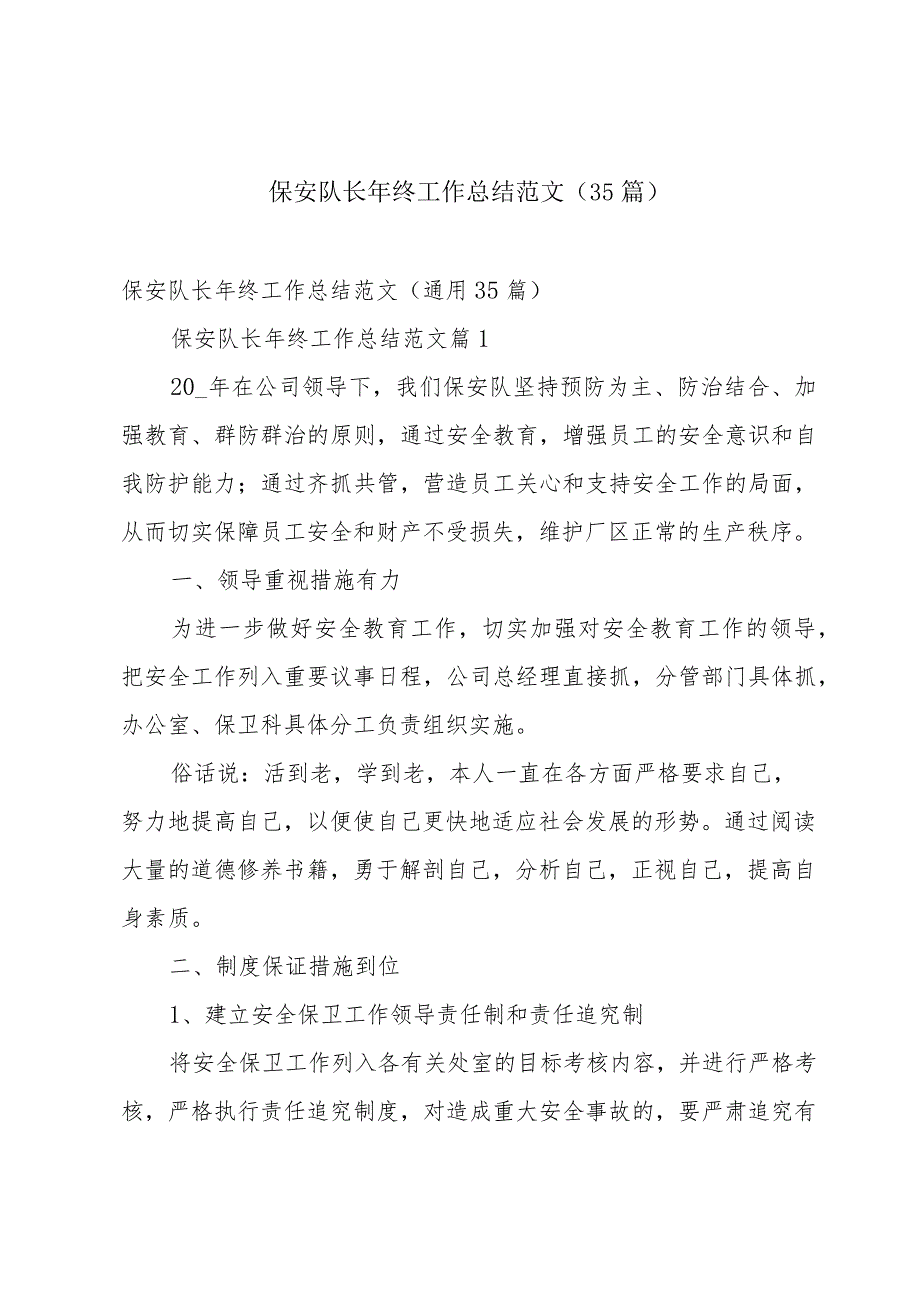 保安队长年终工作总结范文（35 篇）
保安队长年终工作总结范文（通用 35 篇）
保安队长年终工作总结范文篇 1
20_年在公司领导下，我们保安队坚持预防为主、防治结合、加
强教育、群防群治的原则，通过安全教育，增强员工的安全意识和自
我防护能力；通过齐抓共管，营造员工关心和支持安全工作的局面，
从而切实保障员工安全和财产不受损失，维护厂区正常的生产秩序。
一、领导重视措施有力
为进一步做好安全教育工作，切实加强对安全教育工作的领导，
把安全工作列入重要议事日程，公司总经理直接抓，分管部门具体抓，
办公室、保卫科具体分工负责组织实施。
俗话说：活到老，学到老，本人一直在各方面严格要求自己，
努力地提高自己，以便使自己更快地适应社会发展的形势。通过阅读
大量的道德修养书籍，勇于解剖自己，分析自己，正视自己，提高自
身素质。
二、制度保证措施到位
1、建立安全保卫工作领导责任制和责任追究制
将安全保卫工作列入各有关处室的目标考核内容，并进行严格考
核，严格执行责任追究制度，对造成重大安全事故的，要严肃追究有